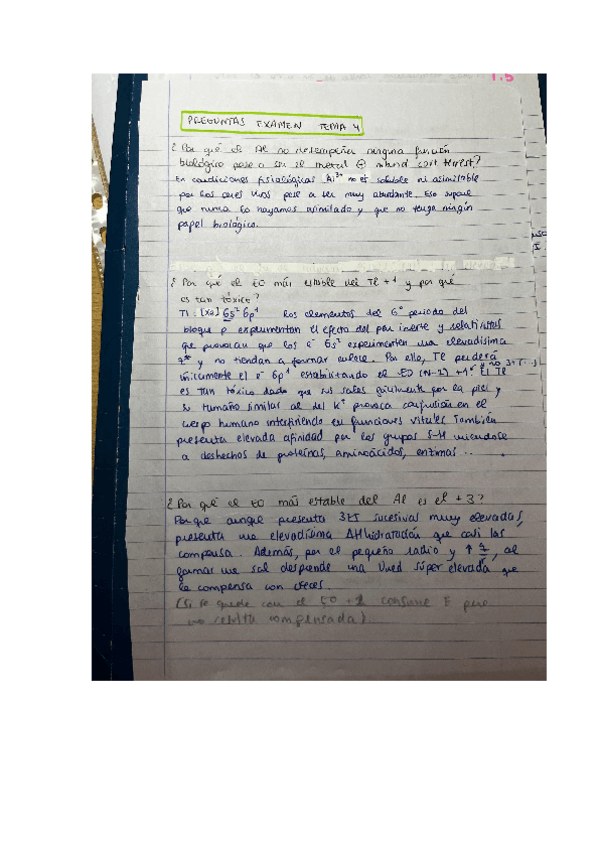 1.5
PREGUNTAS EXAMEN TEMA 4
¿Por qué el Al no desempeña ninguna función
biológica pese a ser el metal ⊕ abund cort. terrest?
En condiciones fisiológicas Al³⁺ no es soluble ni asimilable
por los seres vivos pese a ser muy abundante. Eso supone
que nunca lo hayamos asimilado y que no tenga ningún
papel biológico.
¿Por qué el EO más estable del Tl +1 y por qué
es tan tóxico?
Tl: [Xe] 6s² 6p¹ Los elementos del 6º periodo del
bloque p experimentan el efecto del par inerte y relativistas
que provocan que los e⁻ 6s² experimenten una elevadísima
Z* y no tiendan a formar enlace. Por ello, Tl perderá
únicamente el e⁻ 6p¹ estabilizando el EO (N-2) +1 y no 3+ (...)
El Tl
es tan tóxico dado que sus sales por la piel y
su tamaño similar al del K⁺ provoca confusión en el
cuerpo humano interfiriendo en funciones vitales. También
presenta elevada afinidad por los grupos S-H uniendose
a deshechos de proteínas, aminoácidos, enzimas...
¿Por qué el EO más estable del Al es el +3?
Porque aunque presenta 3 sucesivas muy elevadas,
presenta una elevadísima ΔHhidratación que casi las
compensa. Además, por el pequeño radio y ↑ q/r, al
formar una sal desprende una Ured súper elevada que
le compensa con creces.
(Si se queda con el EO +1 consume E pero
no resulta compensada)